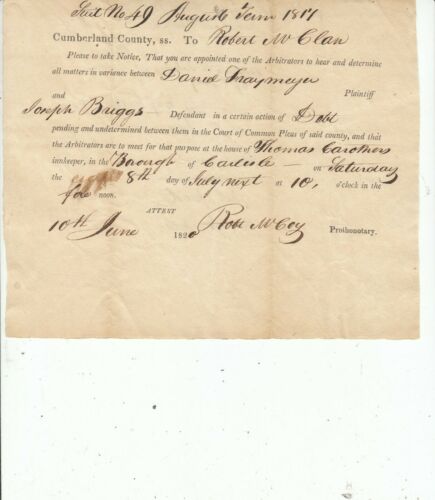 No. 49 August Term 1817
Cumberland County, ss. To Robert McClan
Please to take Notice, That you are appointed one of the Arbitrators to hear and determine
all matters in variance between Daniel Draymeyer
Plaintiff
and
Joseph Briggs Defendant in a certain action of Debt
pending and undetermined between them in the Court of Common Pleas of said county, and that
the Arbitrators are to meet for that purpose at the house of Thomas Carothers
innkeeper, in the Borough of Carlisle — on Saturday
the 8th day of July next at 10, o'clock in the
fore noon.
ATTEST
10th June 1820 Robt McCoy Prothonotary.